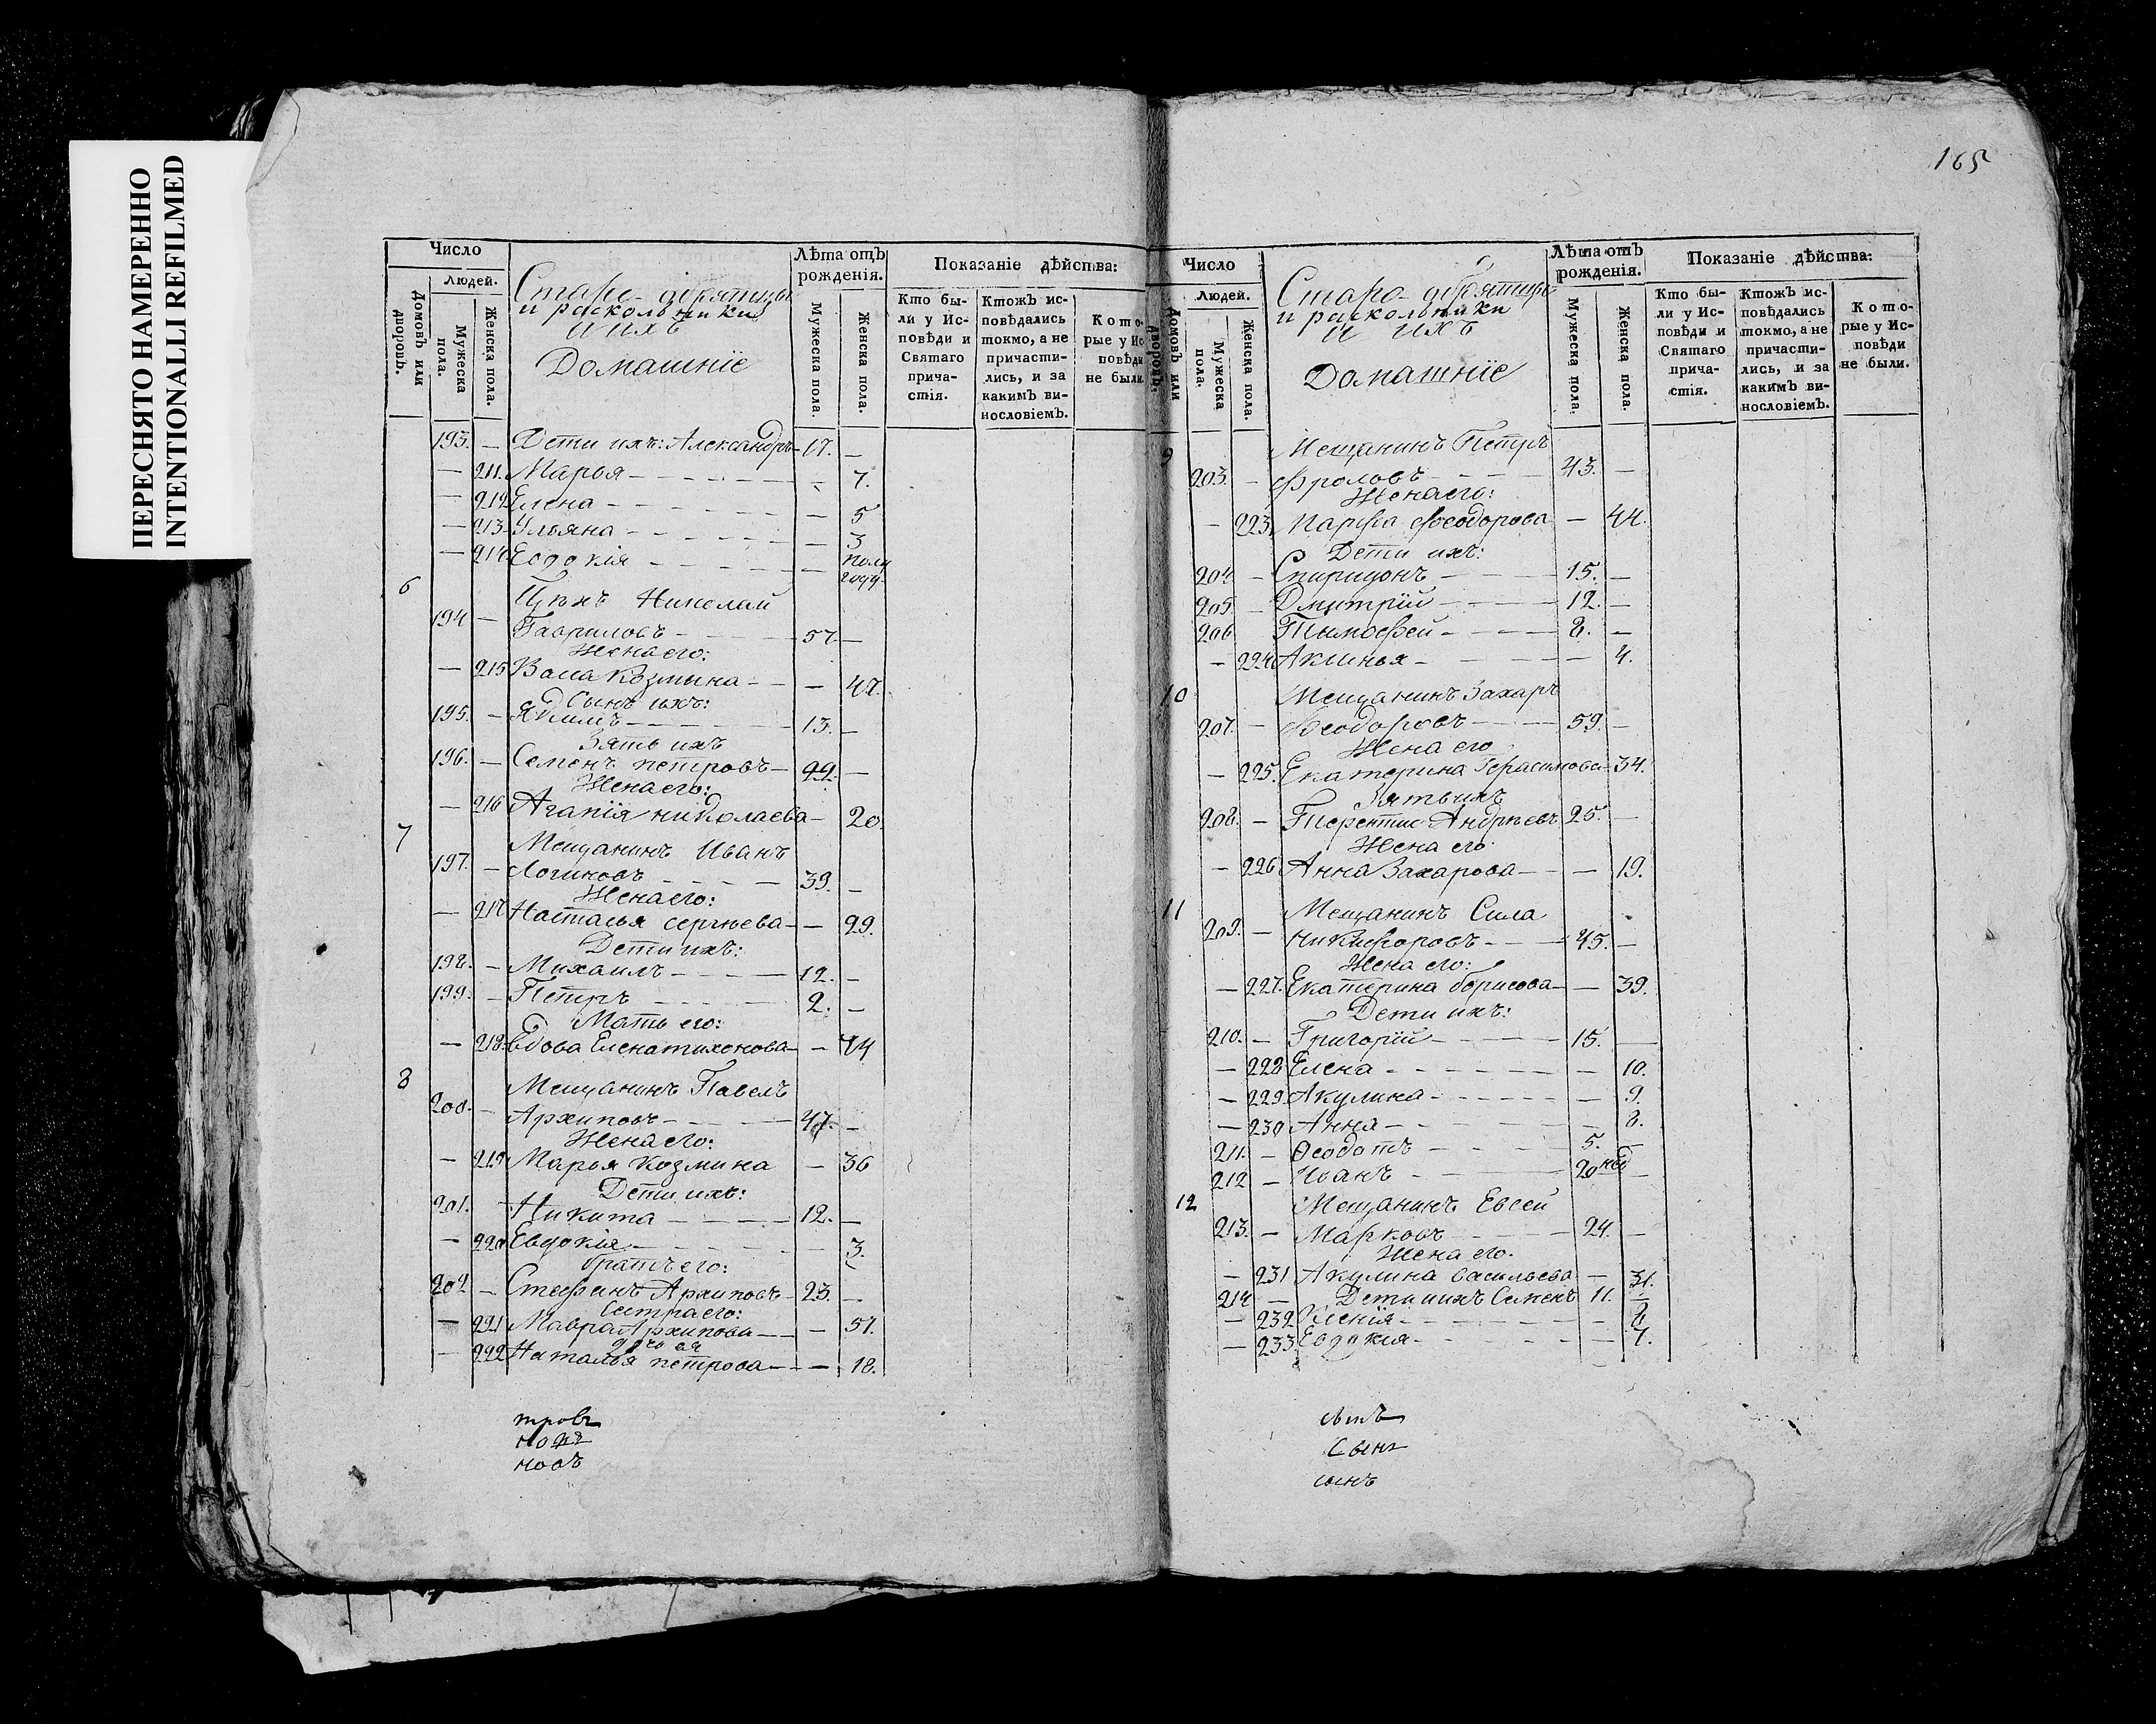 ПЕРЕСНЯТО НАМЕРЕННО
INTENTIONALLI REFILMED
165
Число
Людей.
Домовъ или дворовъ.
Мужеска пола.
Женска пола.
Старо-обрятцы
и раскольники
и ихъ
Домашніе
Лѣта отъ рожденія.
Мужеска пола.
Женска пола.
Показаніе дѣйства:
Кто были у Исповѣди и Святаго причастія.
Ктожъ исповѣдались токмо, а не причастились, и за какимъ винословіемъ.
Которые у Исповѣди не были.
193. — Дети ихъ: Александръ — 17. —
— 211. Марья — — 7.
— 212 Елена — — 5
— 213 Ульяна — — 3
— 214 Евдокія — — полу году
6 Николай
194 — Гавриловъ — 57 —
Жена его:
— 215 Козмина — — 47.
Сынъ ихъ:
195. — — 13. —
Зять ихъ
196. — Семенъ петровъ — 22. —
Жена его:
— 216 Агапія николаева — 20.
7 Мещанинъ Иванъ
197. — Логиновъ — 39. —
Жена его:
— 217 Настасья сергѣева — — 29.
Дети ихъ:
198. — Михаилъ — 12. —
199. — Петръ — 2. —
Мать его:
— 218. вдова Елена тихонова — — 74
8 Мещанинъ Павелъ
200. — Архиповъ — 47. —
Жена его:
— 219 Марья Козмина — 36
Дети ихъ:
201. — Никита — 12. —
— 220 Евдокія — — 3.
братъ его:
202 — Стефанъ Архиповъ — 23. —
Сестра его:
— 221 Мавра Архипова — — 51.
дочь ея
— 222 Наталья петрова — — 18.
тровъ
новъ
новъ
Число
Людей.
Домовъ или дворовъ.
Мужеска пола.
Женска пола.
Старо-обрятцы
и раскольники
и ихъ
Домашніе
Лѣта отъ рожденія.
Мужеска пола.
Женска пола.
Показаніе дѣйства:
Кто были у Исповѣди и Святаго причастія.
Ктожъ исповѣдались токмо, а не причастились, и за какимъ винословіемъ.
Которые у Исповѣди не были.
9 Мещанинъ Петръ
203. — Фроловъ — 43. —
Жена его:
— 223. Марфа Феодорова — 44.
Дети ихъ:
204 — Спиридонъ — 15. —
205 — Дмитрій — 12. —
206 Тимофей — 8. —
— 224 Акинья — — 4.
10 Мещанинъ Захаръ
207. — Феодоровъ — 59. —
Жена его
— 225. Екатерина Герасимова — 34.
Зять ихъ
208. — Терентие Андрѣевъ 25. —
Жена его
— 226 Анна Захарова — — 19.
11 Мещанинъ Сила
209. — Никифоровъ — 45. —
Жена его:
— 227. Екатерина борисова — — 39.
Дети ихъ:
210. — Григорій — 15. —
— 228 Елена — — 10.
— 229. Акулина — — 9.
— 230 Анна — — 8.
211. — Ѳеодатъ — 5. —
212 — Иванъ — 20 нед —
12 Мещанинъ Евсей
213. — Марковъ — 24. —
Жена его.
— 231 Акулина васильева — 31.
214 — Дети ихъ Семенъ 11. —
— 232 Ксенія — — 8
— 233 Евдокія — — 7.
Сынъ
сынъ